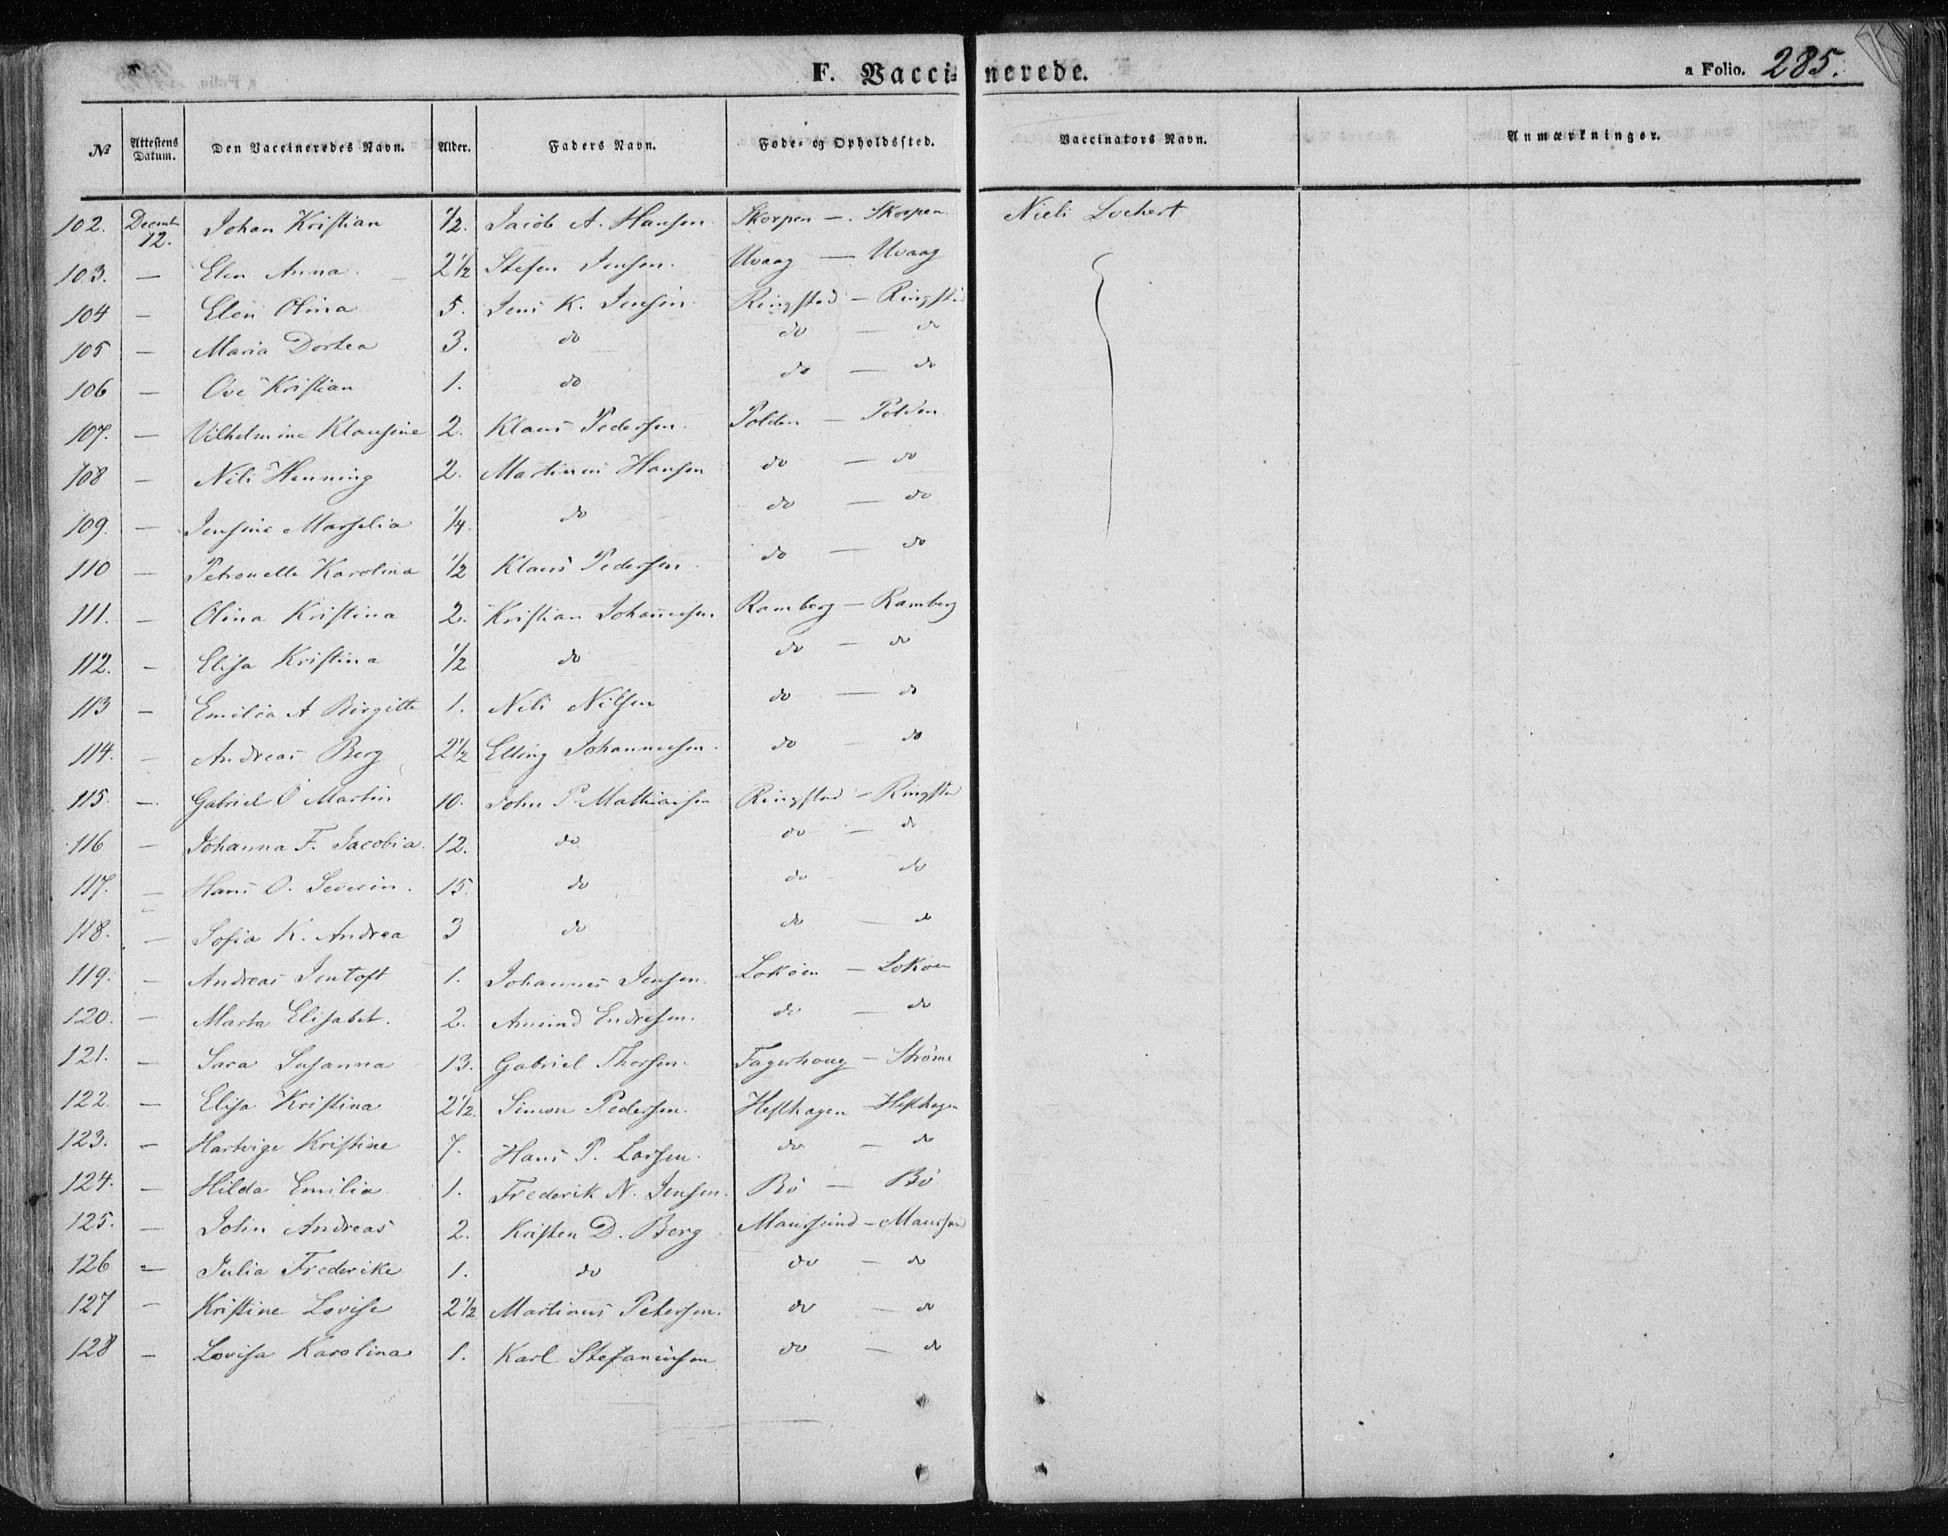 F. Vaccinerede.
a Folio. 285.
№ Attestens Datum. Den Vaccineredes Navn. Alder. Faders Navn. Føde- og Opholdssted. Vaccinators Navn. Anmærkninger.
102. Decmb 12. Johan Kristian 1/2. Jacob A. Hansen. Skorpen — Skorpen. Niels Lochert
103. — Elen Anna. 2 1/2 Stefen Jensen. Uvaag — Uvaag
104 — Elen Olina 5. Jens K. Jensen Ringstad — Ringstad
105 — Maria Dortea 3. do do — do
106 — Ove Kristian 1. do do — do
107. — Vilhelmine Klausine 2. Klaus Pedersen. Polden — Polden.
108 — Nils Henning 2. Martinus Hansen do — do
109. — Jensine Marselia 1/4. do do — do
110 — Petronelle Karolina 1/2 Klaus Pedersen do — do
111. — Olina Kristina 2. Kristian Johannesen Ramberg — Ramberg
112. — Elisa Kristina 1/2 do do — do
113 — Emilia A Birgitte 1. Nils Nilsen do — do
114. — Andreas Berg 2 1/2 Elling Johannesen. do — do
115. — Gabriel O Martin 10. John P. Mathiasen Ringstad — Ringstad
116 — Johanna F. Jacobia. 12. do do — do
117. — Hans O. Severin. 15. do do do
118. — Sofia K. Andrea 3 do do — do
119. — Andreas Jentoft 1. Johannes Jensen. Lokøen — Lokøen
120. — Marta Elisabet. 2. Amund Endresen. do — do
121. — Sara Susanna 13. Gabriel Thorsen. Fagerhoug — Strøme
122. — Elisa Kristina 2 1/2. Simon Pedersen. Hefthagen — Hefthagen
123. — Hartvige Kristine 7. Hans P. Larsen. do — do
124. — Hilda Emilia 1. Frederik N. Jensen. Bö — Bö
125. — John Andreas 2. Kristen D. Berg Maursund — Maursund
126 — Julia Frederike 1. do do — do
127 — Kristine Lovise 2 1/2 Martinus Petersen. do — do
128 — Lovisa Karolina 1. Karl Stefanusen do — do